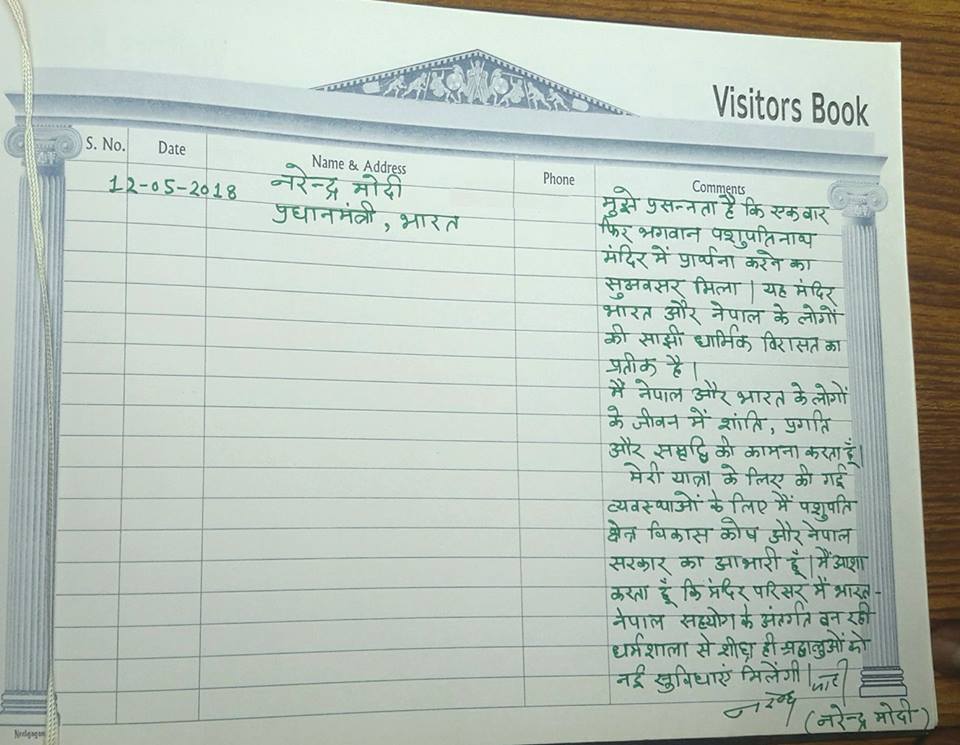 Visitors Book
S. No. Date Name & Address Phone Comments
12-05-2018
नरेन्द्र मोदी
प्रधानमंत्री, भारत
मुझे प्रसन्नता है कि एक बार
फिर भगवान पशुपतिनाथ
मंदिर में प्रार्थना करने का
सुअवसर मिला । यह मंदिर
भारत और नेपाल के लोगों
की साझी धार्मिक विरासत का
प्रतीक है ।
मैं नेपाल और भारत के लोगों
के जीवन में शांति, प्रगति
और समृद्धि की कामना करता हूँ ।
मेरी यात्रा के लिए की गई
व्यवस्थाओं के लिए मैं पशुपति
क्षेत्र विकास कोष और नेपाल
सरकार का आभारी हूँ । मैं आशा
करता हूँ कि मंदिर परिसर में भारत-
नेपाल सहयोग के अंतर्गत बन रही
धर्मशाला से शीघ्र ही श्रद्धालुओं को
नई सुविधाएं मिलेंगी ।
नरेन्द्र मोदी
(नरेन्द्र मोदी)
Neelgagan